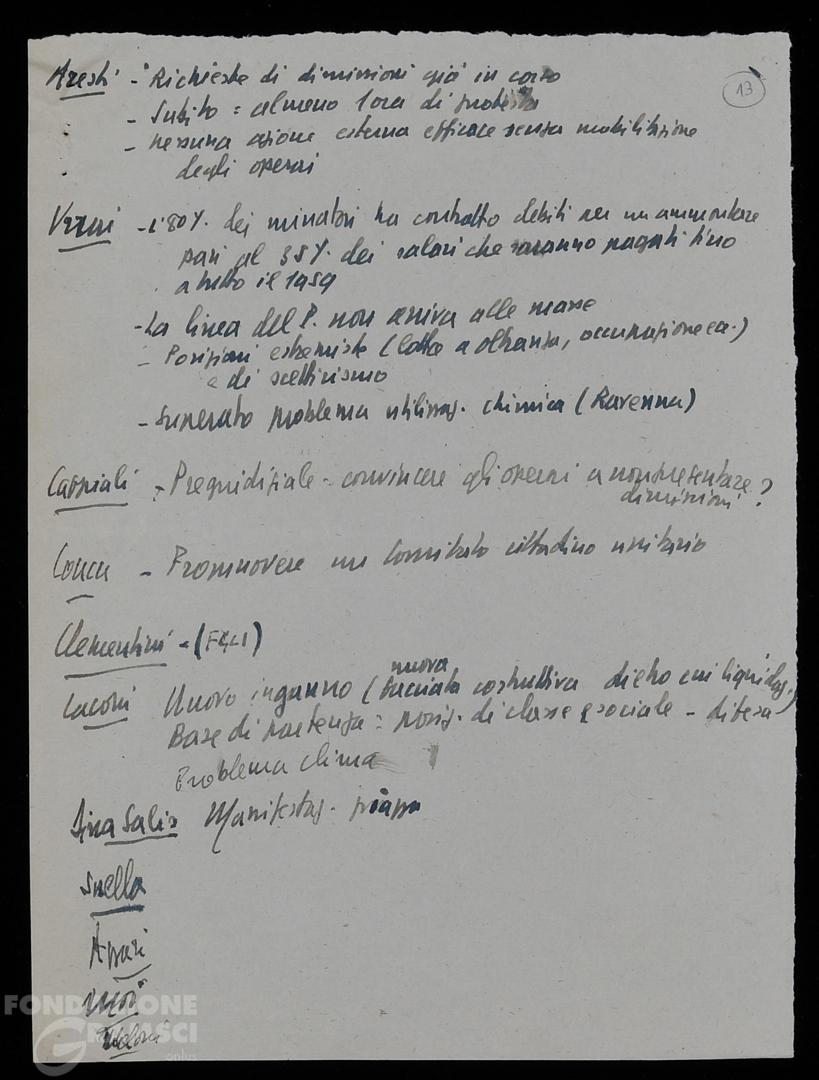 Aresti - Richieste di dimissioni già in corso
13
- Subito = almeno 1 ora di protesta
- nessuna azione esterna efficace senza mobilitazione
degli operai
- L'80% dei minatori ha contratto debiti per un ammontare
pari al 35% dei salari che saranno pagati fino
a tutto il 1959
- La linea del P. non arriva alle masse
- Posizioni estremiste (lotta a oltranza, occupazione ecc.)
e di scetticismo
- Superato problema utilizzaz. chimica (Ravenna)
- Pregiudiziale - convincere gli operai a non presentare
dimissioni?
Concu - Promuovere un Comitato cittadino unitario
Clementini - (FGCI)
nuova
Laconi Nuovo inganno (facciata costruttiva dietro cui liquidaz.)
Base di partenza = posiz. di classe e sociale - difesa
Problema clima
Salis Manifestaz.
Suella
FONDAZIONE
GRAMSCI
onlus